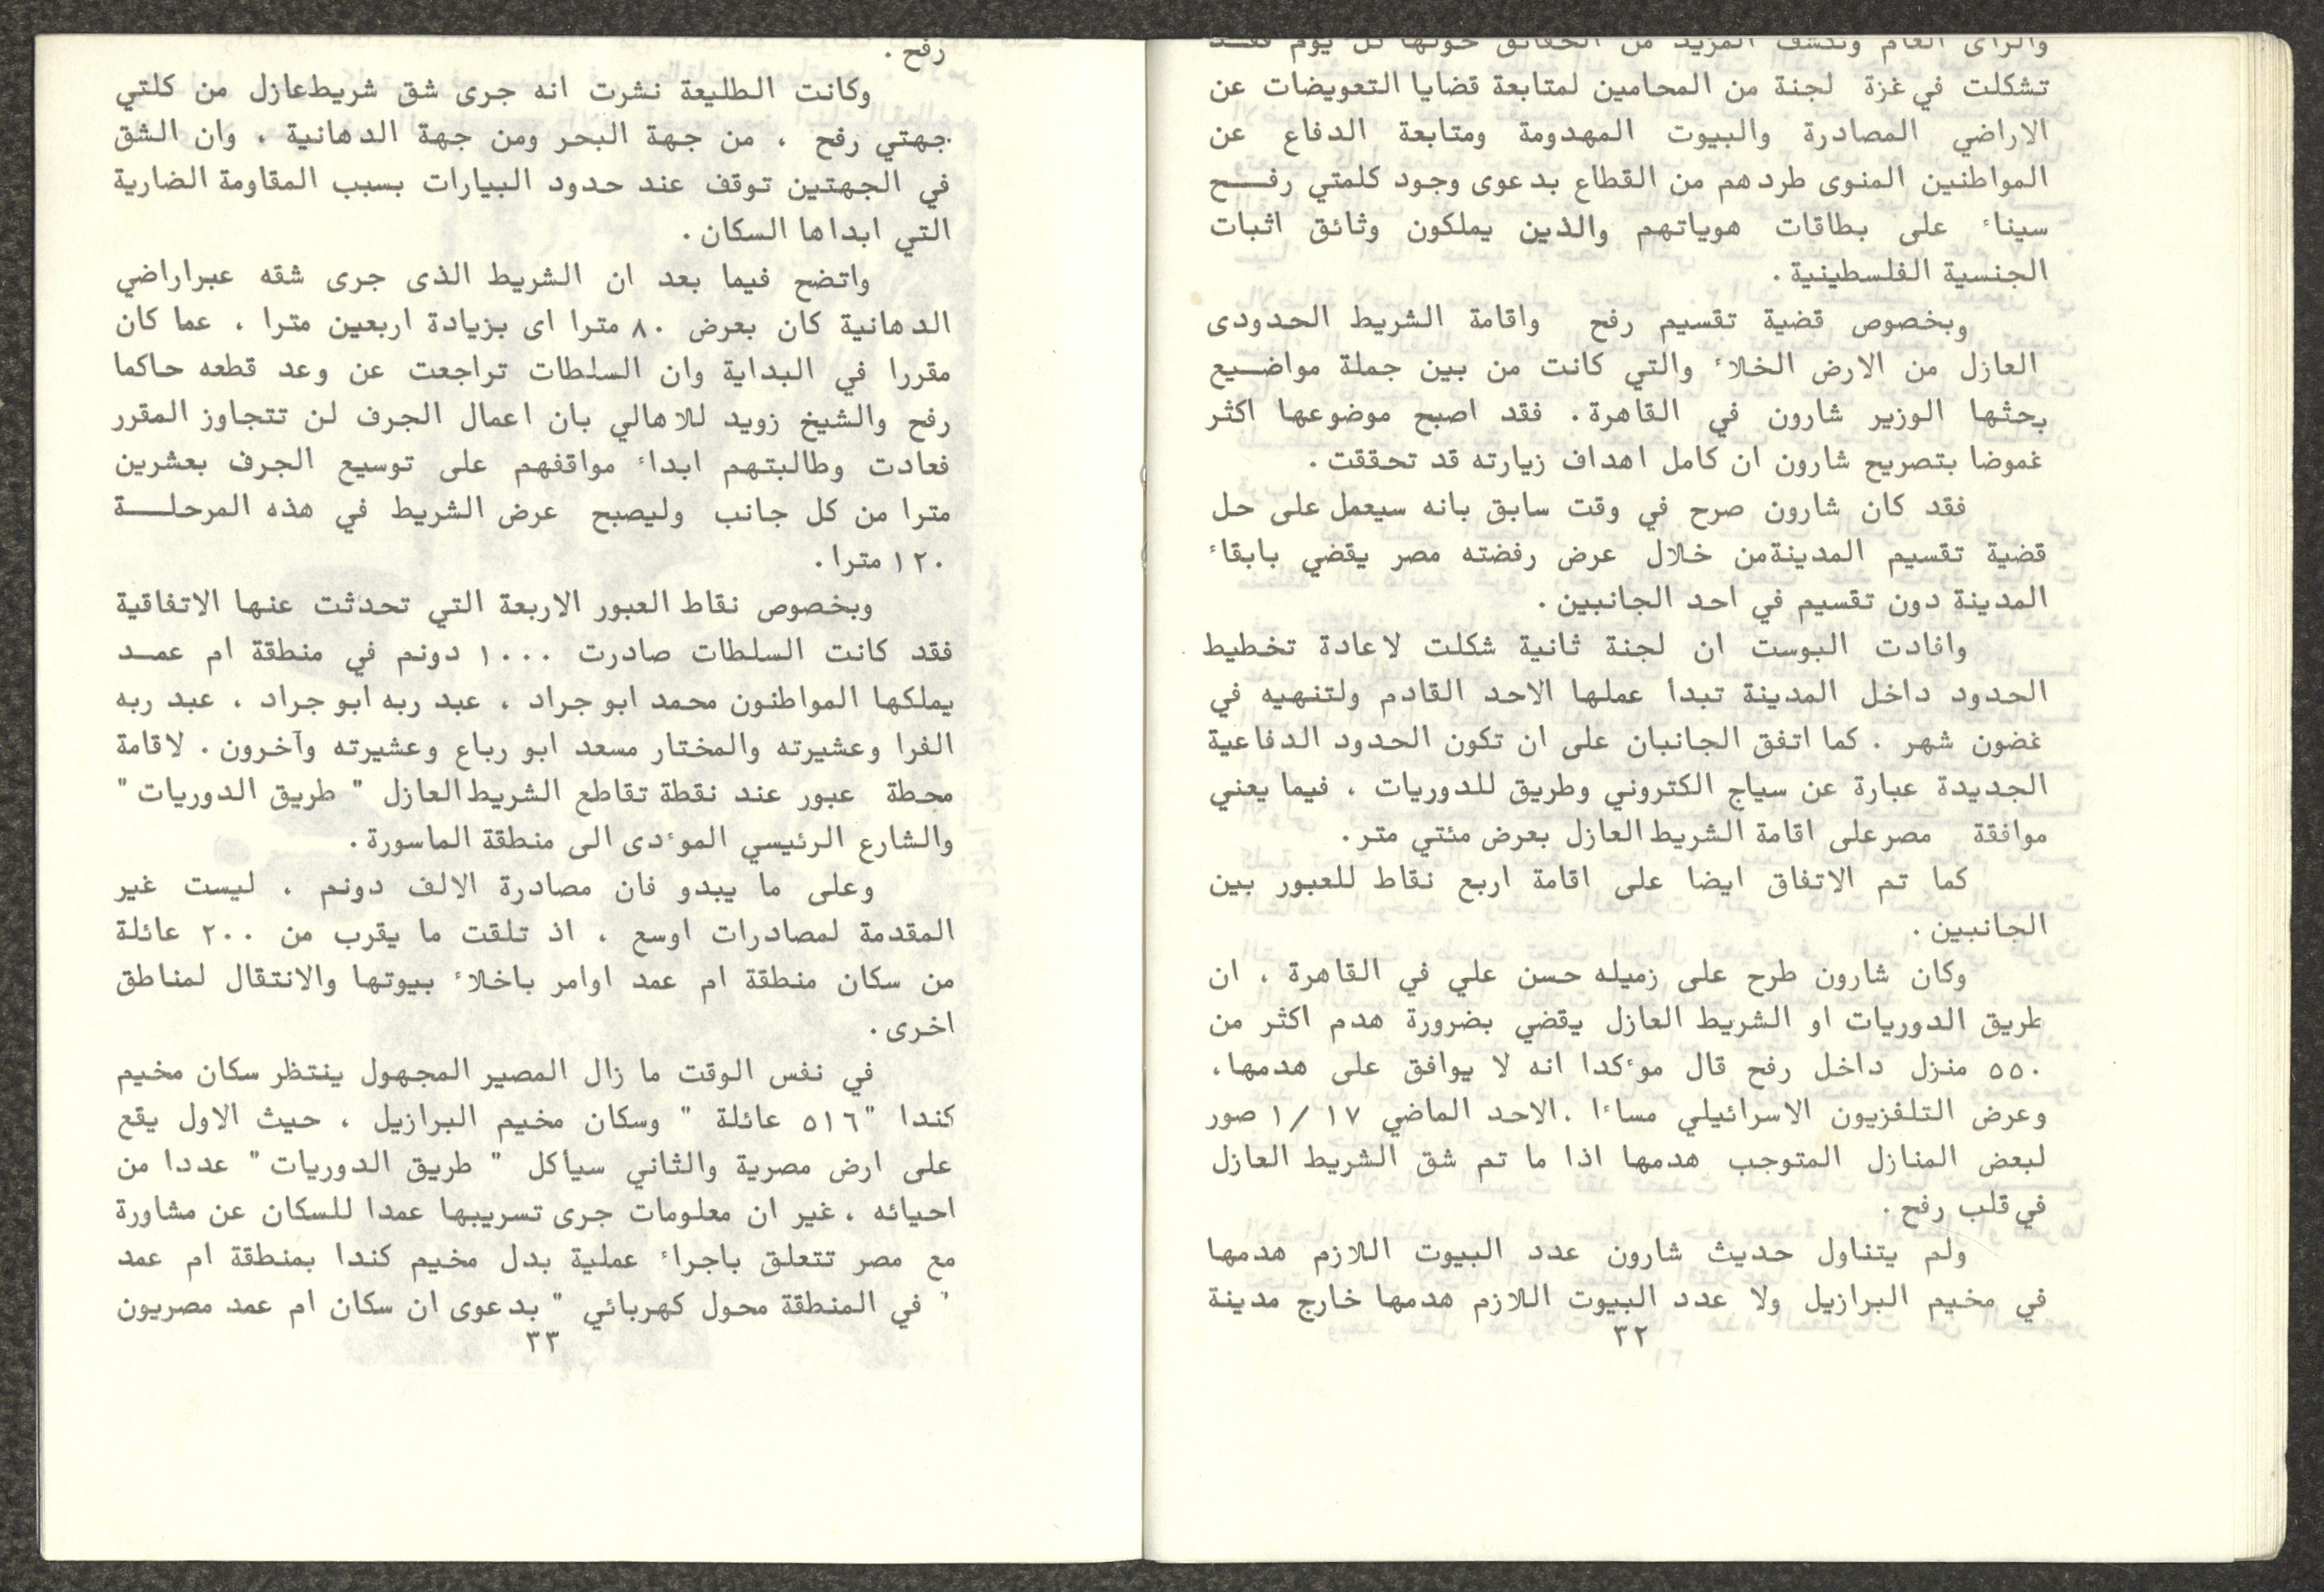 والرأى العام وتكشف المزيد من الحقائق حولها كل يوم فقـــد
تشكلت في غزة لجنة من المحامين لمتابعة قضايا التعويضات عن
الاراضي المصادرة والبيوت المهدومة ومتابعة الدفاع عن
المواطنين المنوى طردهم من القطاع بدعوى وجود كلمتي رفـــح
سيناء على بطاقات هوياتهم والذين يملكون وثائق اثبات
الجنسية الفلسطينية .
وبخصوص قضية تقسيم رفح واقامة الشريط الحدودى
العازل من الارض الخلاء والتي كانت من بين جملة مواضـيع
بحثها الوزير شارون في القاهرة . فقد اصبح موضوعها اكثر
غموضا بتصريح شارون ان كامل اهداف زيارته قد تحققت .
فقد كان شارون صرح في وقت سابق بانه سيعمل على حل
قضية تقسيم المدينةمن خلال عرض رفضته مصر يقضي بابقاء
المدينة دون تقسيم في احد الجانبين .
وافادت البوست ان لجنة ثانية شكلت لاعادة تخطيط
الحدود داخل المدينة تبدأ عملها الاحد القادم ولتنهيه في
غضون شهر . كما اتفق الجانبان على ان تكون الحدود الدفاعية
الجديدة عبارة عن سياج الكتروني وطريق للدوريات ، فيما يعني
موافقة مصر على اقامة الشريط العازل بعرض مئتي متر .
كما تم الاتفاق ايضا على اقامة اربع نقاط للعبور بين
الجانبين .
وكان شارون طرح على زميله حسن علي في القاهرة ، ان
طريق الدوريات او الشريط العازل يقضي بضرورة هدم اكثر من
٥٥٠ منزل داخل رفح قال موءكدا انه لا يوافق على هدمها ،
وعرض التلفزيون الاسرائيلي مساءا ،الاحد الماضي ١٧ /١ صور
لبعض المنازل المتوجب هدمها اذا ما تم شق الشريط العازل
في قلب رفح .
ولم يتناول حديث شارون عدد البيوت اللازم هدمها
في مخيم البرازيل ولا عدد البيوت اللازم هدمها خارج مدينة
٣٢
رفح .
وكانت الطليعة نشرت انه جرى شق شريط عازل من كلتي
جهتي رفح ، من جهة البحر ومن جهة الدهانية ، وان الشق
في الجهتين توقف عند حدود البيارات بسبب المقاومة الضارية
التي ابداها السكان .
واتضح فيما بعد ان الشريط الذى جرى شقه عبراراضي
الدهانية كان بعرض ٨٠ مترا اى بزيادة اربعين مترا ، عما كان
مقررا في البداية وان السلطات تراجعت عن وعد قطعه حاكما
رفح والشيخ زويد للاهالي بان اعمال الجرف لن تتجاوز المقرر
فعادت وطالبتهم ابداء مواقفهم على توسيع الجرف بعشرين
مترا من كل جانب وليصبح عرض الشريط في هذه المرحلـــة
١٢٠ مترا .
وبخصوص نقاط العبور الاربعة التي تحدثت عنها الاتفاقية
فقد كانت السلطات صادرت ١٠٠٠ دونم في منطقة ام عمـد
يملكها المواطنون محمد ابو جراد ، عبد ربه ابو جراد ، عبد ربه
الفرا وعشيرته والمختار مسعد ابو رباع وعشيرته وآخرون . لاقامة
محطة عبور عند نقطة تقاطع الشريط العازل " طريق الدوريات "
والشارع الرئيسي الموءدى الى منطقة الماسورة .
وعلى ما يبدو فان مصادرة الالف دونم ، ليست غير
المقدمة لمصادرات اوسع ، اذ تلقت ما يقرب من ٢٠٠ عائلة
من سكان منطقة ام عمد اوامر باخلاء بيوتها والانتقال لمناطق
اخرى .
في نفس الوقت ما زال المصير المجهول ينتظر سكان مخيم
كندا "٥١٦ عائلة " وسكان مخيم البرازيل ، حيث الاول يقع
على ارض مصرية والثاني سيأكل " طريق الدوريات " عددا من
احيائه ، غير ان معلومات جرى تسريبها عمدا للسكان عن مشاورة
مع مصر تتعلق باجراء عملية بدل مخيم كندا بمنطقة ام عمد
' في المنطقة محول كهربائي " بدعوى ان سكان ام عمد مصريون
٣٣